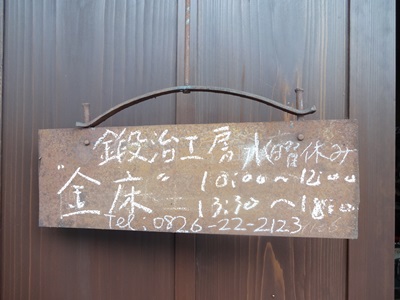 鍛冶工房 水曜休み
"金床" 10:00~12:00
13:30~18:00
Tel:0826-22-2123